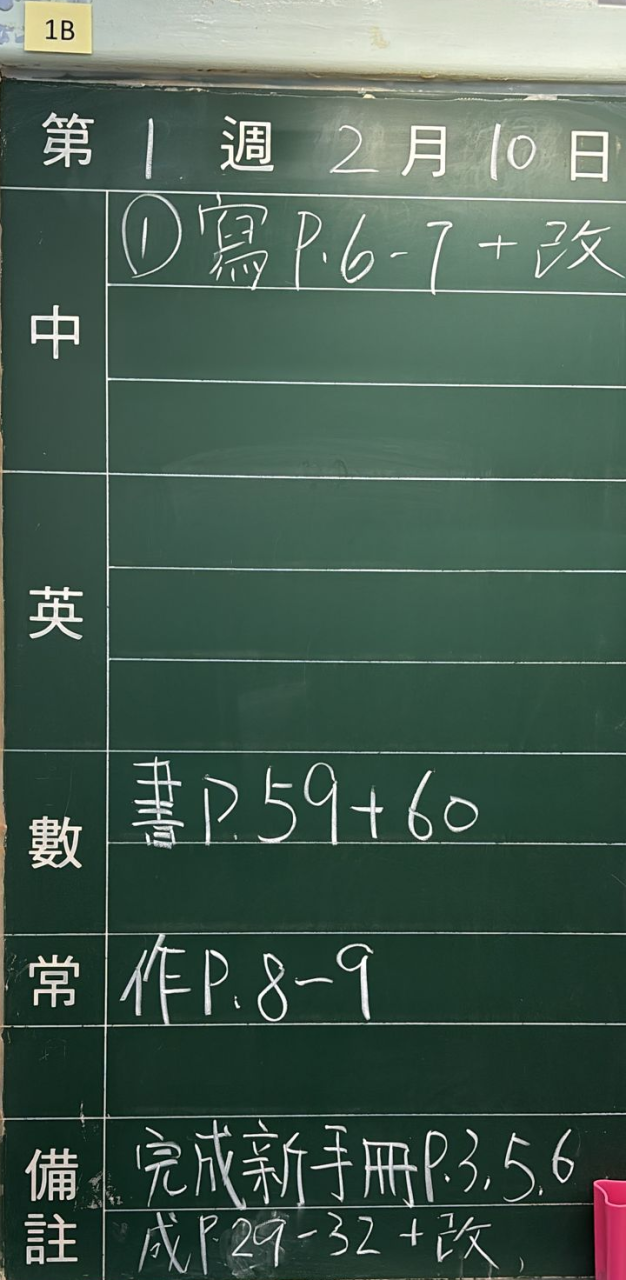 1B
第 1 週 2 月 10 日
中 ① 寫 P.6-7 + 改
英
數 書 P.59+60
常 作 P.8-9
備註 完成新手冊 P.3,5,6
成 P.29-32 + 改